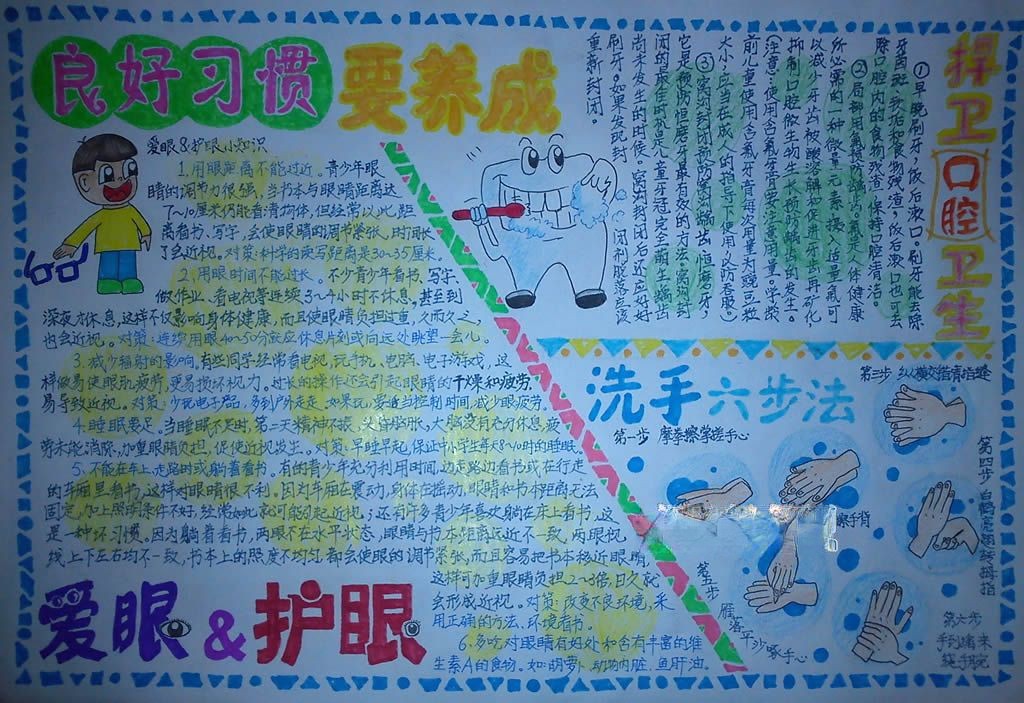 良好习惯
要养成
爱眼&护眼小知识
1.用眼距离不能过近。青少年眼
睛的调节力很强,当书本与眼睛距离达
了~10厘米仍能看清物体,但经常以此距
离看书、写字,会使眼睛的调节紧张,时间长
了会近视。对策:科学的读写距离是30~35厘米。
2.用眼时间不能过长。不少青少年看书、写字、
做作业、看电视等连续3~4小时不休息,甚至到
深夜才休息,这样不仅影响身体健康,而且使眼睛负担过重,久而久之,
也会近视。对策:连续用眼40~50分就应休息片刻或向远处眺望一会儿。
3.减少辐射的影响。有些同学经常看电视,玩手机、电脑、电子游戏,这
样做易使眼肌疲劳,更易损坏视力。过长的操作还会引起眼睛的干燥和疲劳,
易导致近视。对策:少玩电子产品,多到户外走走。如果玩,要适当控制时间,减少眼疲劳。
4.睡眠要足。当睡眠不足时,第二天精神不振、头昏脑胀,大脑没有充分休息,疲
劳未能消除,加重眼睛负担,促使近视发生。对策:早睡早起,保证中小学生每天8~10时的睡眠。
5.不能在车上、走路时或躺着看书。有的青少年充分利用时间,边走路边看书或在行走
的车厢里看书,这样对眼睛很不利。因为车厢在震动,身体在摇动,眼睛和书本距离无法
固定,加上照明条件不好,经常如此就可能引起近视;还有许多青少年喜欢躺在床上看书,这
是一种坏习惯。因为躺着看书,两眼不在水平状态,眼睛与书本距离远近不一致,两眼视
线上下左右均不一致,书本上的照度不均匀,都会使眼的调节紧张,而且容易把书本移近眼睛,
这样可加重眼睛负担2~3倍,日久就
会形成近视。对策:改变不良环境,采
用正确的方法、环境看书。
6.多吃对眼睛有好处和含有丰富的维
生素A的食物。如:胡萝卜、动物内脏、鱼肝油。
爱眼&护眼
捍卫口腔卫生
①早晚刷牙,饭后漱口。刷牙能去除
牙菌斑、软垢和食物残渣,饭后漱口也可去
除口腔内的食物残渣,保持口腔清洁。
②局部用氟预防龋齿。氟是人体健康
所必需的一种微量元素,摄入适量氟可
以减少牙齿被酸溶解和促进牙齿再矿化,
抑制口腔微生物生长,预防龋齿的发生。
(注意:使用含氟牙膏要注意用量。学龄
前儿童使用含氟牙膏每次用量为豌豆粒
大小,应当在成人的指导下使用,以防吞服。)
③窝沟封闭预防窝沟龋齿(恒磨牙,
它是预防恒磨牙龋最有效的方法。窝沟封
闭的最佳时机是儿童牙冠完全萌出,龋齿
尚未发生的时候。窝沟封闭后还应好好
刷牙。如果发现封闭剂脱落应该
重新封闭。
洗手六步法
第一步 摩拳擦掌搓手心
第三步
第四步
第五步 雁落平沙
手心
第六步